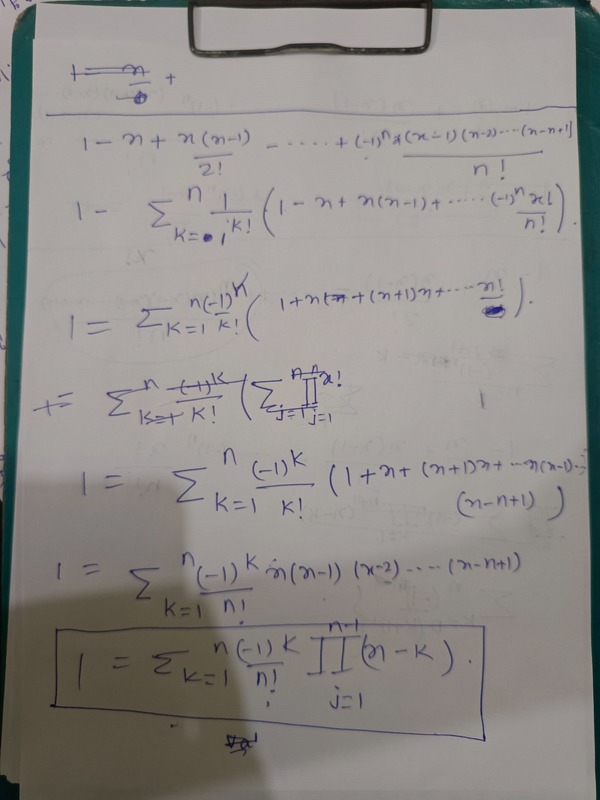 1 = n/0 +
1 - x + x(x-1)/2! - ..... + (-1)^n x(x-1)(x-2)...(x-n+1)/n!
1 - ∑_{k=1}^{n} 1/k! (1 - x + x(x-1) + ..... (-1)^n x!/n!).
1 = ∑_{k=1}^{n} (-1)^k/k! ( 1+x + (x+1)x + .... x! ).
+= ∑_{k=1}^{n} (-1)^k/k! (∑_{j=1}^{n} ∏_{j=1}^{n} x!
1
1 = ∑_{k=1}^{n} (-1)^k/k! (1+x+ (x+1)x+ ...x(x-1)...
(x-n+1) )
1 = ∑_{k=1}^{n} (-1)^k/n! x(x-1) (x-2) .... (x-n+1)
1 = ∑_{k=1}^{n} (-1)^k/n! ∏_{j=1}^{n-1} (x-k).